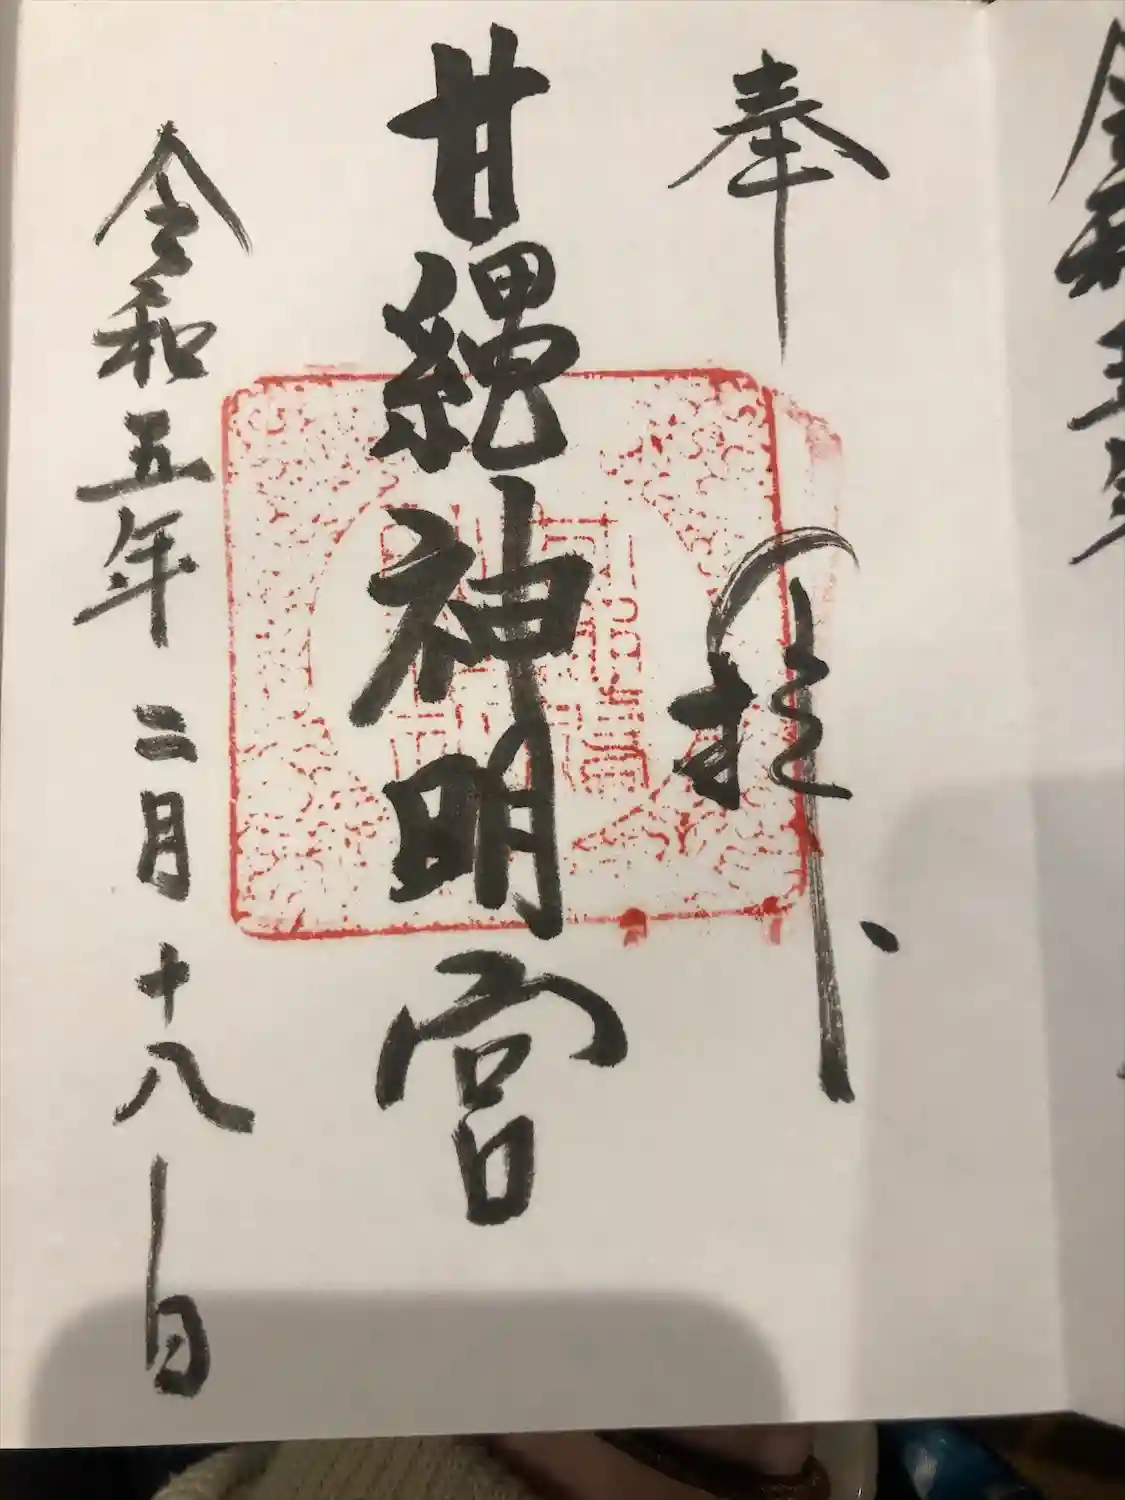 奉拝
甘縄神明宮
令和五年二月十八日
令和五年